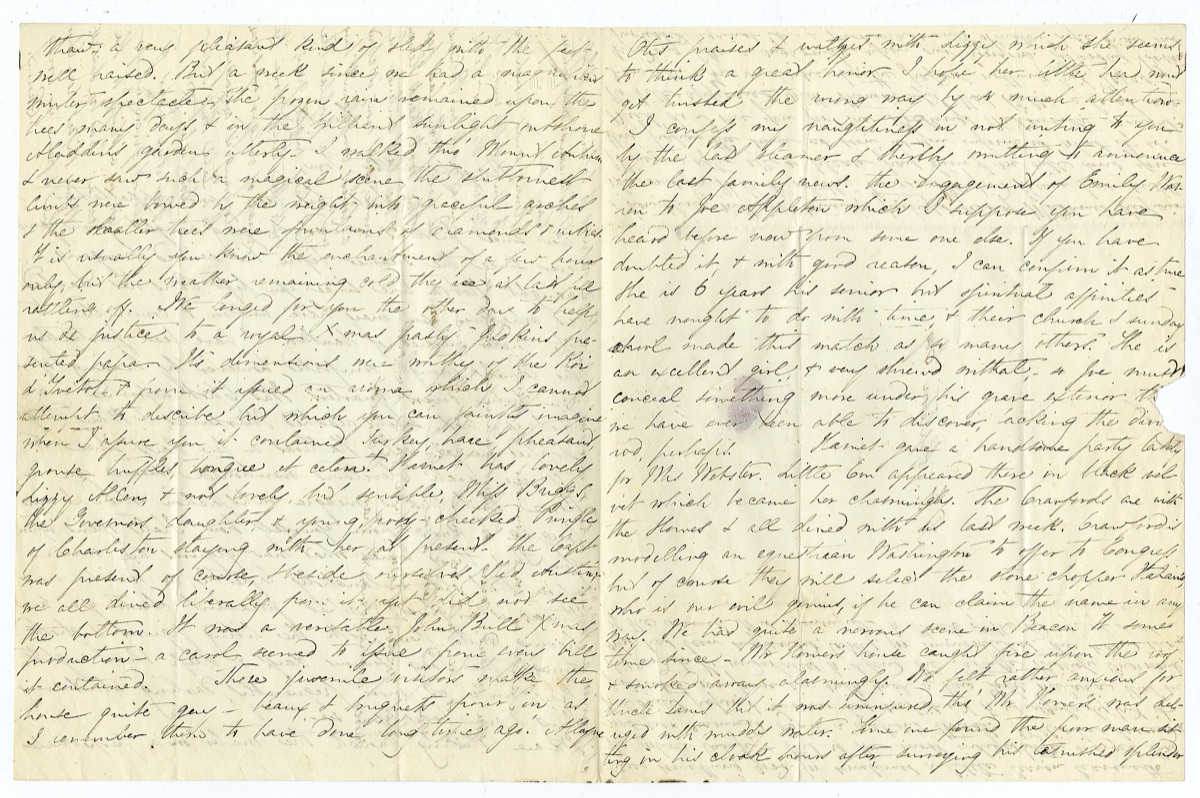 thaw, a very pleasant kind of sled with the feet
well raised. But a week since we had a magnificent
winter spectacle, the frozen rain remained upon the
trees many days, & in the brilliant sunlight outshone
Aladdins garden utterly. I walked thro' Mount Auburn
& never saw such a magical scene the stubbornest
limbs were bowed by the weight into graceful arches
& the smaller trees were fountains of diamonds &
It is usually you know the enchantment of a few hours
only, but the weather remaining cold the ice at last fell
rattling off. We longed for you the other day to help
us do justice to a royal Xmas pasty Perkins pre-
sented papa. Its dimensions were worthy of the Roi
d'Yvetot, & from it issued an aroma which I cannot
attempt to describe but which you can faintly imagine
when I assure you it contained turkey, hare, pheasant
grouse truffles tongue et cetera. Harriet has lovely
Lizzy Allen, & not lovely, but sensible, Miss Briggs,
the Governors daughter & young, rosy-cheeked Pringle
of Charleston staying with her at present. The Capt
was present of course, beside ourselves & Ned Austin,
we all dined liberally from it yet did not see
the bottom. It was a veritable John Bull Xmas
production – a carol seemed to issue from every bill
it contained. These juvenile visitors make the
house quite gay – beaux & bouquets pour in as
I remember them to have done long time ago.
Otis praises & waltzes with Lizzy which she seems
to think a great honor. I hope her little head wont
get twisted the wrong way by so much attention.
I confess my naughtiness in not writing to you
by the last steamer & thereby omitting to announce
the last family news. the engagement of Emily War-
ren to Joe Appleton which I suppose you have
heard before now from some one else. If you have
doubted it & with good reason, I can confirm it as true
She is 6 years his senior but spiritual affinities
have nought to do with time, & their church & sunday
school made this match as so many others. She is
an excellent girl & very shrewd withal, – so Joe must
conceal something more under his grave exterior th
we have ever been able to discover, lacking the divin
rod, perhaps. Harriet gave a handsome party lately
for Mrs Webster. Little Em appeared there in black vel-
vet which became her charmingly. The Crawfords are with
the Howes & all dined with us last week. Crawford is
modelling an equestrian Washington to offer to Congress
but of course they will select the stone chopper Italian
who is our evil genius, if he can claim the name in any
way. We had quite a nervous scene in Beacon St some
time since – Mr house caught fire upon the roof
& smoked away alarmingly. We felt rather anxious for
Uncle Sams but it was uninjured, tho' Mr was del-
uged with muddy water. Some one found the poor man sit-
ting in his cloak hours after, surveying his tarnished splendor